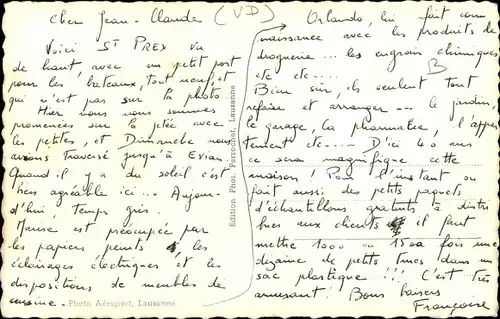 Cher Jean-Claude (VD)
Voici St PREX vu
de haut, avec un petit port
pour les bateaux, tout neuf, et
qui n'est pas sur la photo.
Hier nous nous sommes
promenées sur la jetée avec
les petites, et Dimanche nous
avions traversé jusqu'à Evian.
Quand il y a du soleil c'est
très agréable ici... Aujour-
d'hui, temps gris.
est préoccupée par
les papiers peints, les
éclairages électriques et les
dispositions de meubles de
cuisine.
Photo Aéroport, Lausanne
Edition Phot. Perrochet, Lausanne
Orlando, lui fait con
naissance avec les produits de
droguerie... les engrais chimiques
etc etc....
B
Bien sûr, ils veulent tout
refaire et arranger... le jardin,
le garage, la pharmacie, l'appar
tement etc.... D'ici 40 ans
ce sera magnifique cette
maison! Pour l'instant on
fait aussi des petits paquets
d'échantillons gratuits à distri
buer aux clients il faut
mettre 1000 ou 1500 fois une
dizaine de petits trucs dans un
sac plastique!!! C'est très
amusant! Bons baisers
Françoise